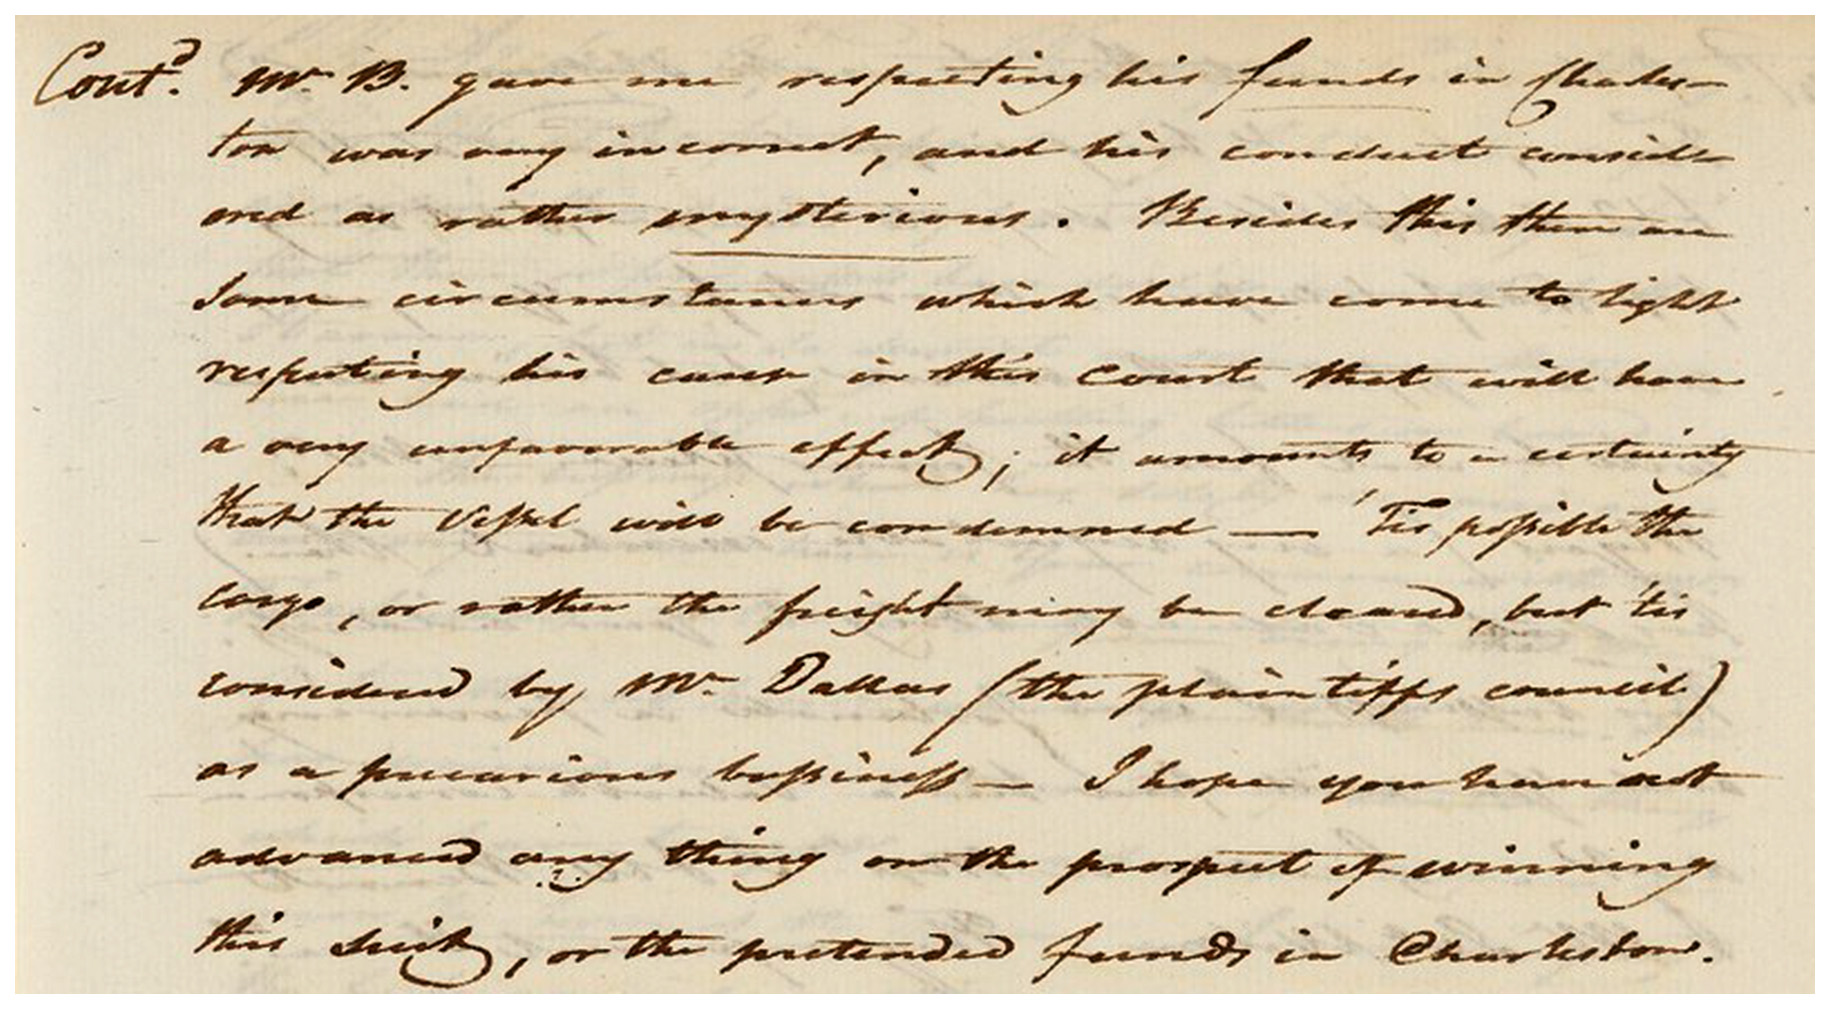 Cont.d Mr. B. gave me respecting his funds in Charles-
ton was very incorrect, and his conduct consid-
ered as rather mysterious. Besides this there are
Some circumstances which have come to light
respecting his cause in this Court that will have
a very unfavorable effect; it amounts to a certainty
that the Vessel will be condemned — 'Tis possible the
cargo, or rather the freight may be cleared, but 'tis
considered by Mr. Dallas (the plaintiffs council)
as a precarious bussiness — I hope you have not
advanced any thing on the prospect of winning
this Suit, or the pretended funds in Charleston.